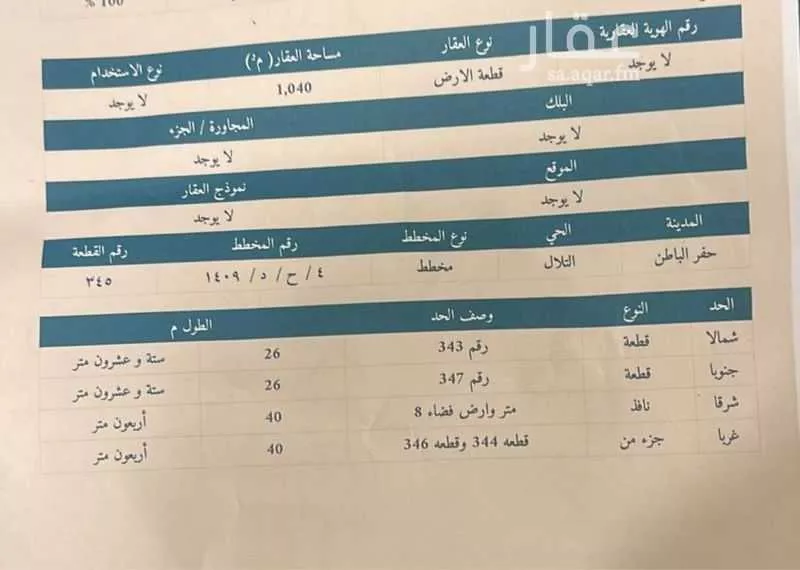 100 %
رقم الهوية العقارية نوع العقار مساحة العقار( م²) نوع الاستخدام
لا يوجد قطعة الارض 1,040 لا يوجد
عقار
sa.aqar.fm
البلك المجاورة / الجزء
لا يوجد لا يوجد
الموقع نموذج العقار
لا يوجد لا يوجد
المدينة الحي نوع المخطط رقم المخطط رقم القطعة
حفر الباطن التلال مخطط ٤ / ح / د / ١٤٠٩ ٣٤٥
الحد النوع وصف الحد الطول م
شمالا قطعة رقم 343 26 ستة و عشرون متر
جنوبا قطعة رقم 347 26 ستة و عشرون متر
شرقا نافذ متر وارض فضاء 8 40 أربعون متر
غربا جزء من قطعه 344 وقطعه 346 40 أربعون متر